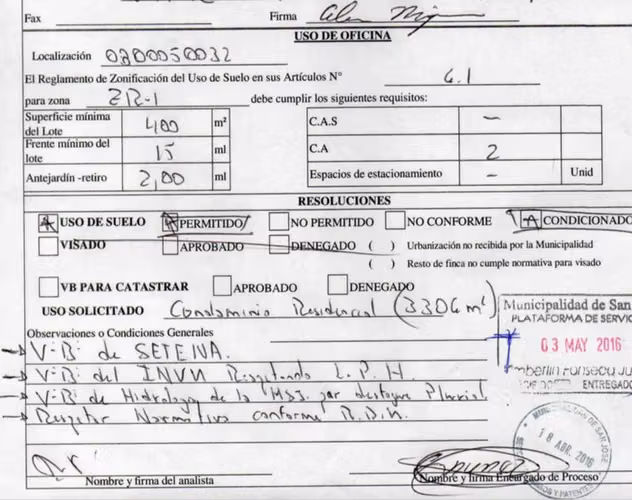 Fax Firma
USO DE OFICINA
Localización 0200050032
El Reglamento de Zonificación del Uso de Suelo en sus Artículos N° 6.1
para zona ZR-1 debe cumplir los siguientes requisitos:
Superficie mínima del Lote 400 m² C.A.S —
Frente mínimo del lote 15 ml C.A 2
Antejardín -retiro 2,00 ml Espacios de estacionamiento - Unid
RESOLUCIONES
USO DE SUELO PERMITIDO NO PERMITIDO NO CONFORME CONDICIONADO
VISADO APROBADO DENEGADO ( ) Urbanización no recibida por la Municipalidad
( ) Resto de finca no cumple normativa para visado
VB PARA CATASTRAR APROBADO DENEGADO
USO SOLICITADO Condominio Residencial (3306 m²
Municipalidad de San
PLATAFORMA DE SERVIC
03 MAY 2016
ENTREGADO
Observaciones o Condiciones Generales
V·B· de SETENA.
V·B· del INVU Respetando L.P.H.
V·B· de Hidrología de la MSJ por desfogue Pluvial
Respetar Normativa conforme
MUNICIPALIDAD DE SAN JOSE
18 ABR. 2016
Nombre y firma del analista Nombre y firma Encargado de Proceso